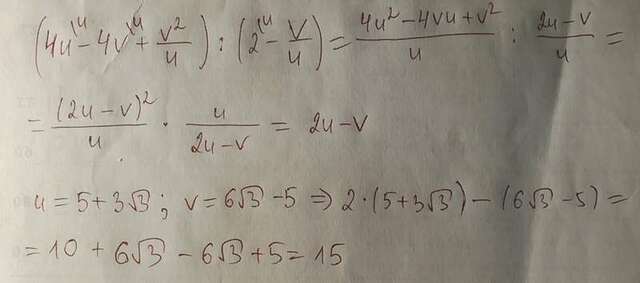 (4u^{\u} - 4v^{\u} + \frac{v^2}{u}) : (2^{\u} - \frac{v}{u}) = \frac{4u^2 - 4vu + v^2}{u} : \frac{2u - v}{u} =
= \frac{(2u - v)^2}{u} \cdot \frac{u}{2u - v} = 2u - v
u = 5 + 3\sqrt{3}; v = 6\sqrt{3} - 5 ⇒ 2·(5 + 3\sqrt{3}) - (6\sqrt{3} - 5) =
= 10 + 6\sqrt{3} - 6\sqrt{3} + 5 = 15